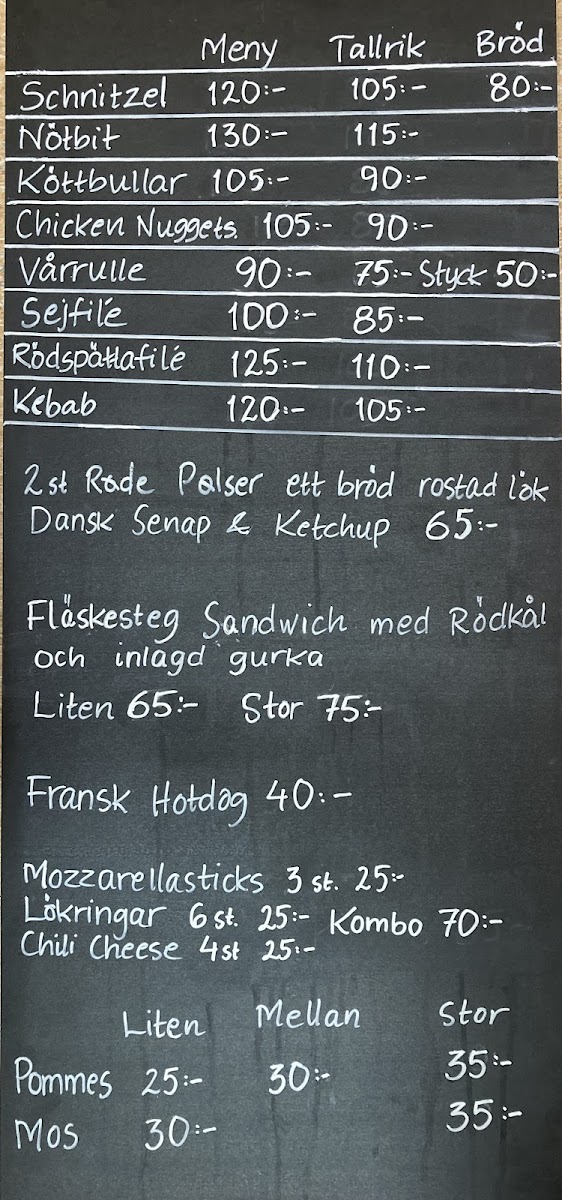 Meny Tallrik Bröd
Schnitzel 120:- 105:- 80:-
Nötbit 130:- 115:-
Köttbullar 105:- 90:-
Chicken Nuggets 105:- 90:-
Vårrulle 90:- 75:- Styck 50:-
Sejfilé 100:- 85:-
Rödspättafilé 125:- 110:-
Kebab 120:- 105:-
2 st Røde Pølser ett bröd rostad lök
Dansk Senap & Ketchup 65:-
Fläskesteg Sandwich med Rödkål
och inlagd gurka
Liten 65:- Stor 75:-
Fransk Hotdog 40:-
Mozzarellasticks 3 st. 25:-
Lökringar 6 st. 25:- Kombo 70:-
Chili Cheese 4st 25:-
Liten Mellan Stor
Pommes 25:- 30:- 35:-
Mos 30:- 35:-